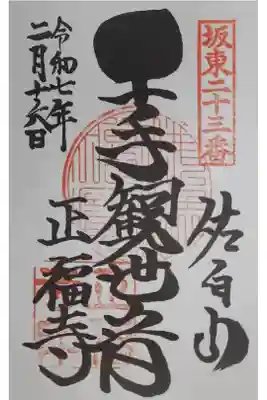 坂東二十三番
佐白山
千手観世音
正福寺
令和七年
二月十六日